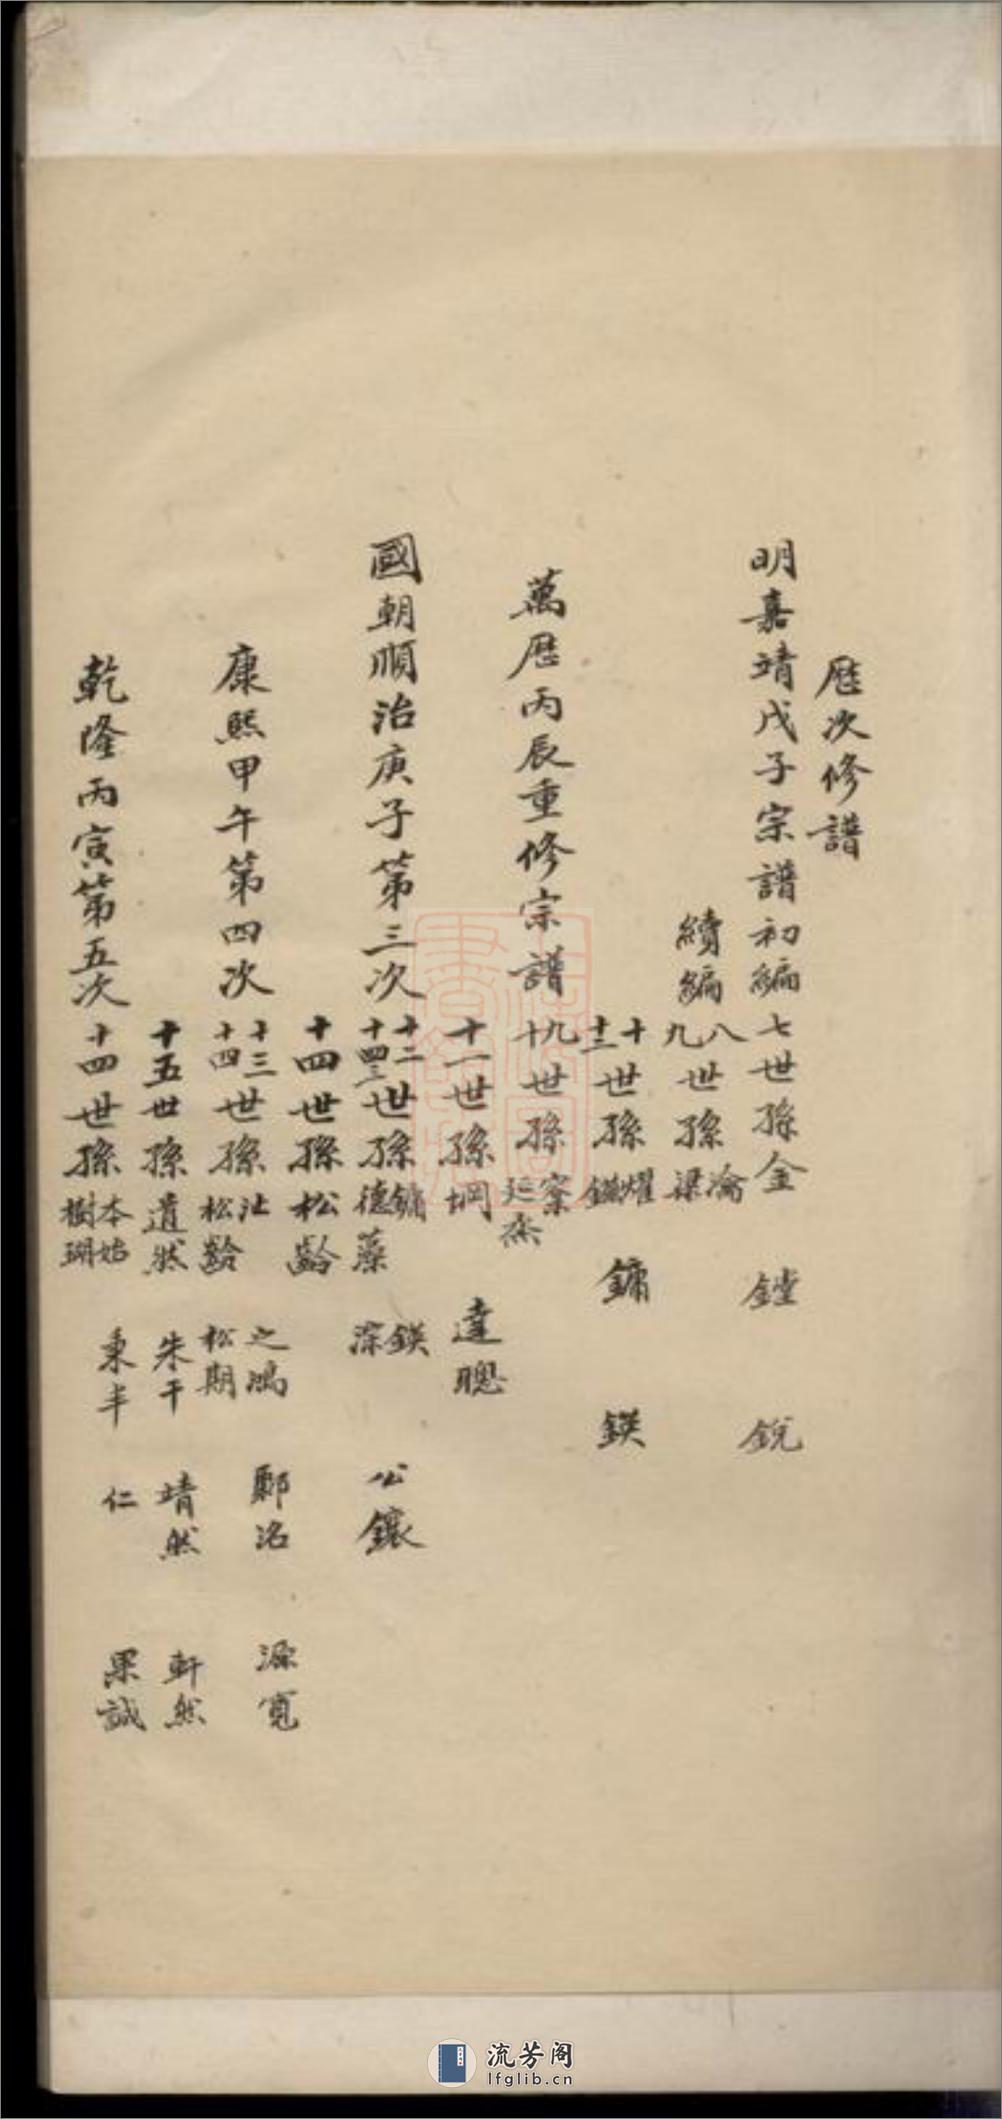 歷次修譜
明嘉靖戊子宗譜初編 七世孫金 鏜 銳
續編 八九世孫 瀹梁
十十二世孫 燿鎡 鏞 鍈
萬歷丙辰重修宗譜 九十世孫 寀延杰
十一世孫㭎 達聰
國朝順治庚子第三次 十二十三十四世孫 鏞德藻 鍈深 公鑲
十四世孫松齡
康熙甲午第四次 十三十四世孫 沚松齡 之鴻松期 鄭洺 源寬
十五世孫道然 朱干 靖然 軒然
乾隆丙寅第五次 十四世孫 本始樹瑚 秉丰 仁 果誠
流芳阁
lfglib.cn